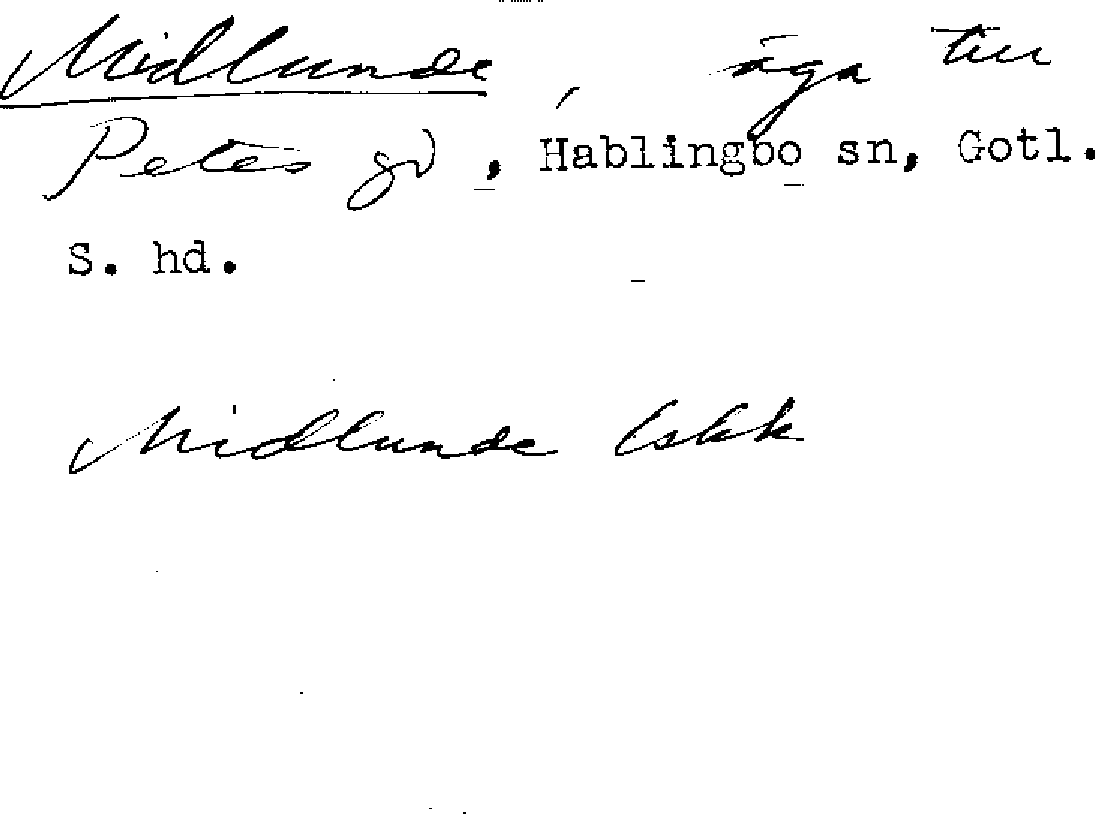 Midlunde, äga till
Petes gd, Hablingbo sn, Gotl.
S. hd.
Midlunde